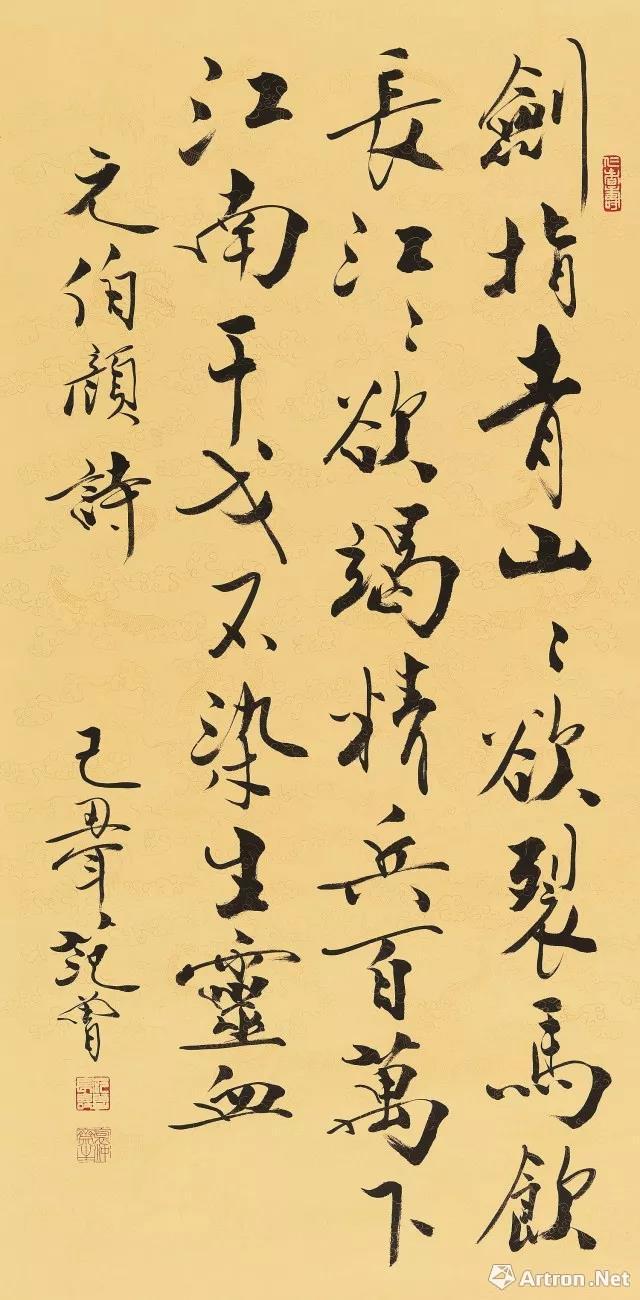 劍指青山〻欲裂馬飲
長江〻欲竭精兵百萬下
江南干戈不染生靈血
元伯顏詩
己丑年 范曾
仁者壽
Artron.Net